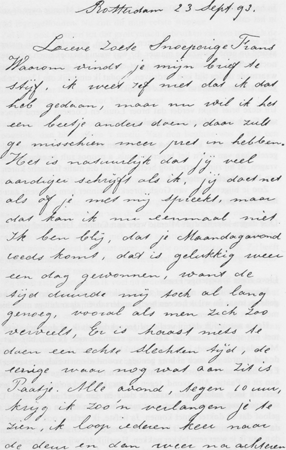 Rotterdam 23 Sept 93.
Lieve Zoete Snoeperige Frans
Waarom vindt je mijn brief te
stijf, ik weet zelf niet dat ik dat
heb gedaan, maar nu wil ik het
een beetje anders doen, daar zult
ge misschien meer pret in hebben.
Het is natuurlijk dat jij veel
aardiger schrijft als ik, jij doet net
als of je met mij spreekt, maar
dat kan ik nu eenmaal niet
Ik ben blij, dat je Maandagavond
reeds komt, dat is gelukkig weer
een dag gewonnen, want de
tijd duurde mij toch al lang
genoeg, vooral als men zich zoo
verveelt, Er is haast niets te
doen een echte slechten tijd, de
eenige waar nog wat aan zit is
Paatje. Alle avond, tegen 10 uur,
krijg ik zoo'n verlangen je te
zien, ik loop iederen keer naar
de deur en dan weer na achteren